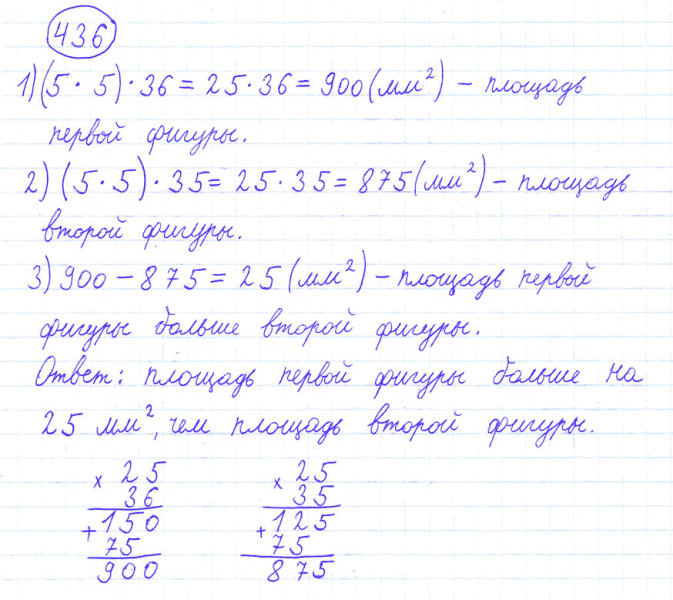 436
1) (5 · 5) · 36 = 25 · 36 = 900 (мм²) – площадь
первой фигуры.
2) (5 · 5) · 35 = 25 · 35 = 875 (мм²) – площадь
второй фигуры.
3) 900 – 875 = 25 (мм²) – площадь первой
фигуры больше второй фигуры.
Ответ: площадь первой фигуры больше на
25 мм², чем площадь второй фигуры.
× 25
36
+ 150
75
900
× 25
35
+ 125
75
875